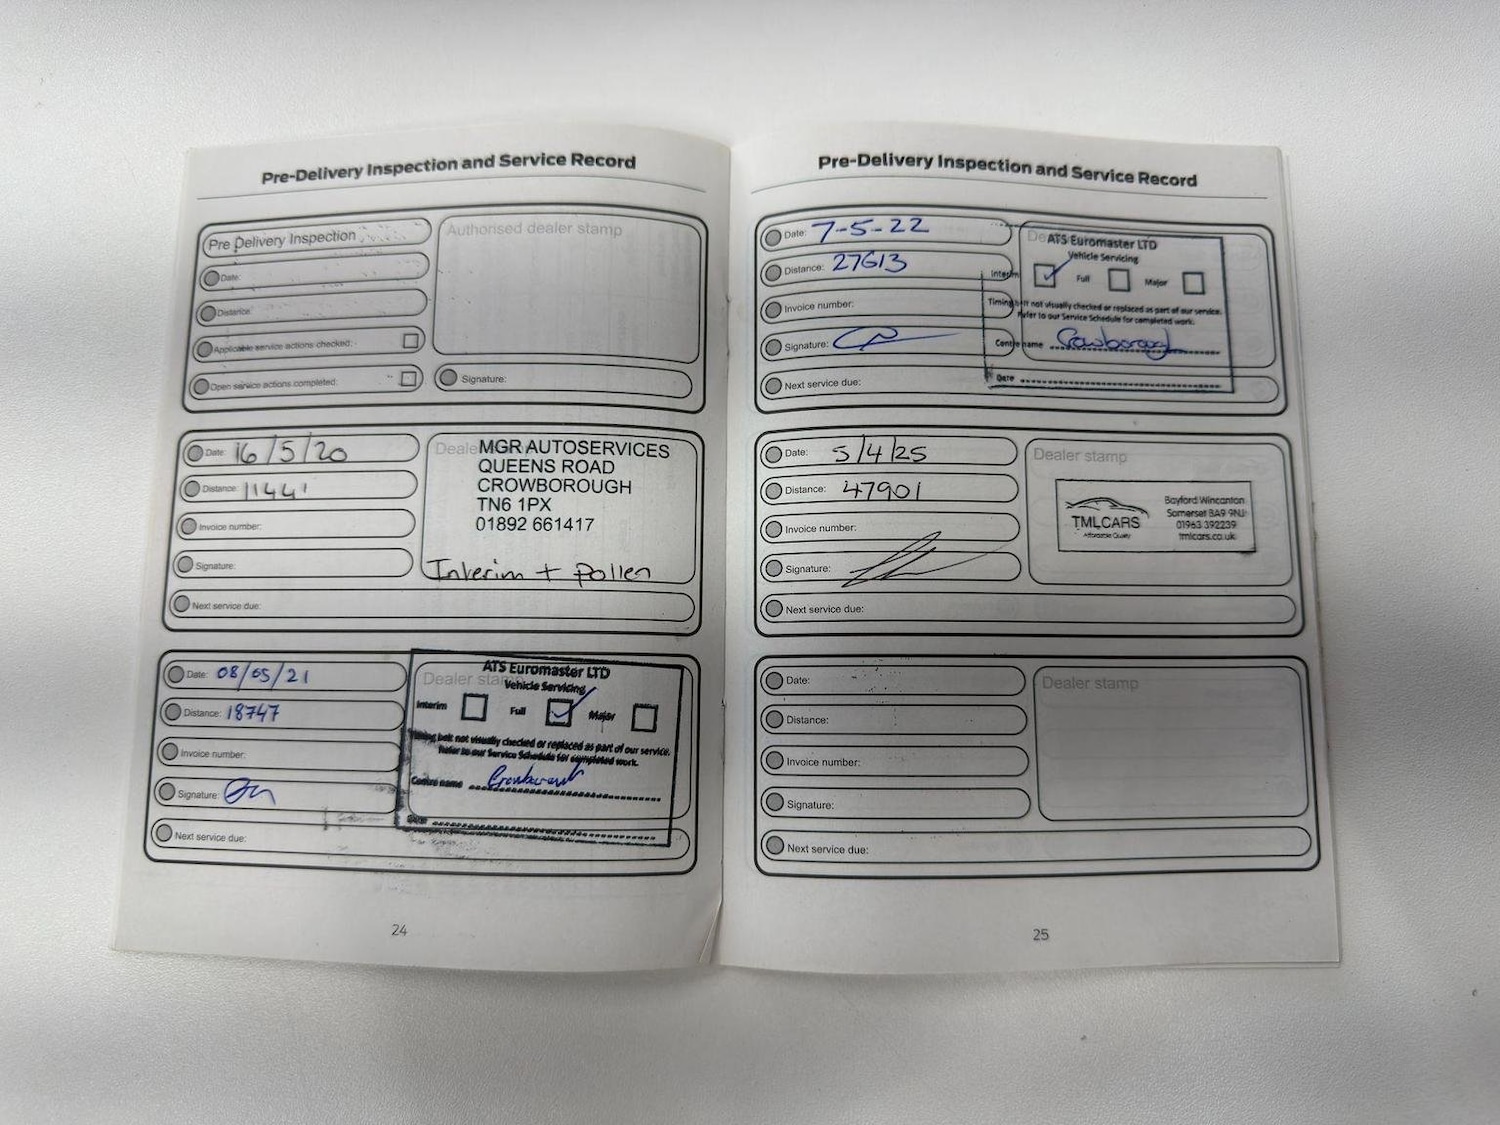 Pre-Delivery Inspection and Service Record
Pre Delivery Inspection
Authorised dealer stamp
Date:
Distance:
Applicable service actions checked:
Open service actions completed:
Signature:
Date: 16/5/20
Distance: 11441
Invoice number:
Signature:
Next service due:
MGR AUTOSERVICES
QUEENS ROAD
CROWBOROUGH
TN6 1PX
01892 661417
Interim + pollen
Date: 08/05/21
Distance: 18747
Invoice number:
Signature:
Next service due:
Dealer stamp
ATS Euromaster LTD
Vehicle Servicing
Interim Full Major
Timing belt not visually checked or replaced as part of our service.
Refer to our Service Schedule for completed work.
Centre name Crowborough
Date
24
Pre-Delivery Inspection and Service Record
Date: 7-5-22
Distance: 27613
Invoice number:
Signature:
Next service due:
ATS Euromaster LTD
Vehicle Servicing
Interim Full Major
Timing belt not visually checked or replaced as part of our service.
Refer to our Service Schedule for completed work.
Centre name Crowborough
Date
Date: 5/4/25
Distance: 47901
Invoice number:
Signature:
Next service due:
Dealer stamp
TMLCARS
Affordable Quality
Bayford Wincanton
Somerset BA9 9NJ
01963 392239
tmlcars.co.uk
Date:
Distance:
Invoice number:
Signature:
Next service due:
Dealer stamp
25